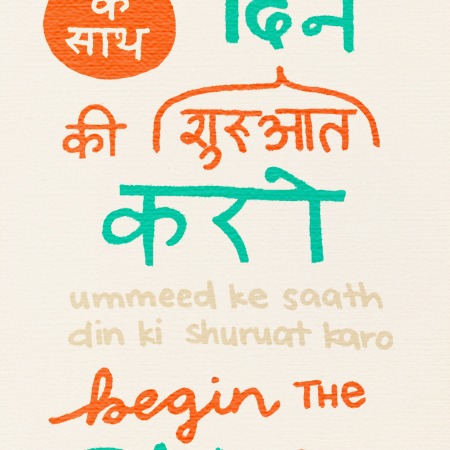 के
साथ
दिन
की शुरूआत
करो
ummeed ke saath
din ki shuruat karo
begin THE